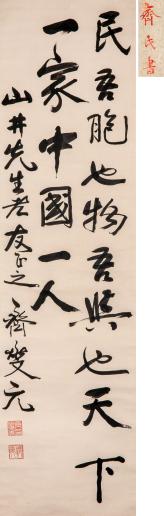 民吾胞也物吾與也天下
一家中國一人
山井先生老友正之 齊燮元
齊氏書